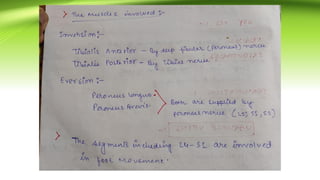 > The muscles involved :-
Inversion :-
Tibialis Anterior - By deep fibular (peroneus) nerve
Tibialis Posterior - By tibial nerve
Eversion :-
Peroneus longus
Peroneus brevis
Both are supplied by
peroneal nerve (L5, S1)
> The segments including L4-S1 are involved
in foot movement.